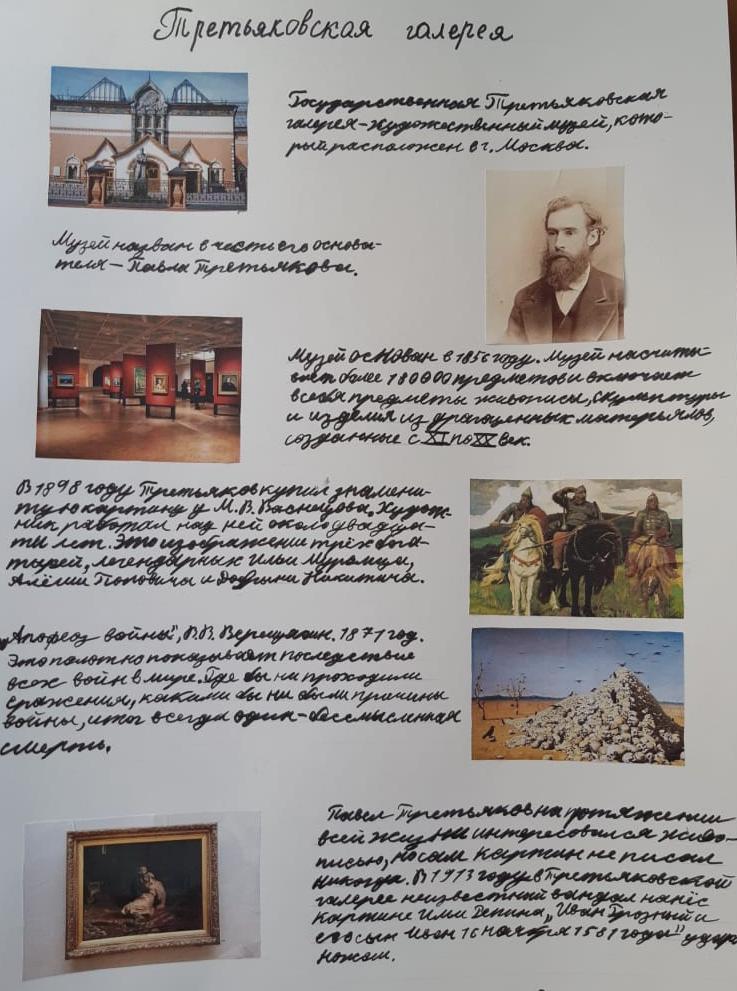 Третьяковская галерея
Государственная Третьяковская
галерея-художественный музей, кото-
рый расположен в г. Москва.
Музей назван в честь его основа-
теля - Павла Третьякова.
Музей основан в 1856 году. Музей насчиты-
вает более 180000 предметов и включает
в себя предметы живописи, скульптуры
и изделия из драгоценных матерьялов,
созданные с XI по XX век.
В 1898 году Третьяков купил знамени-
тую картину у М.В. Васнецова. Худож-
ник работал над ней около двадца-
ти лет. Это изображении трёх бога-
тырей, легендарных Ильи Муромца,
Алёши Поповича и Добрыни Никитича.
"Апофеоз войны", В.В. Верещагин. 1871 год.
Это полотно показывает последствие
всех войн в мире. Где бы ни проходили
сражения, какими бы ни были причины
войны, итог всегда один - бессмысленная
смерть.
Павел Третьяков на протяжении
всей жизни интересовался живо-
писью, но сам картин не писал
никогда. В 1913 году в Третьяковской
галерее неизвестный вандал нанёс
картине Ильи Репина "Иван Грозный и
его сын Иван 16 ноября 1581 года" удар
ножом.